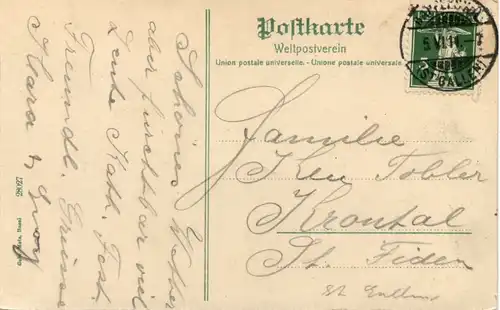 Postkarte
Weltpostverein
Union postale universelle. - Unione postale universale.
5 VI 11
(ST GALLEN)
Familie
Tobler
Krontal
St. Fiden
St. Gallen
Schönes Wetter
aber furchtbar viel
Leute Kath. Fest.
Freundl. Grüsse
Klara &
28027